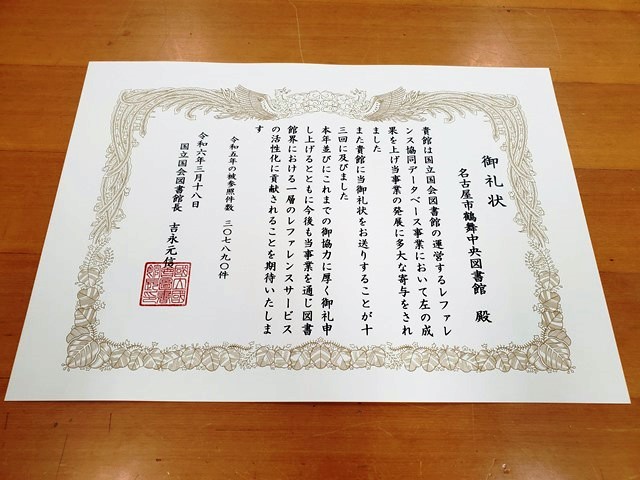 御礼状
名古屋市鶴舞中央図書館 殿
貴館は国立国会図書館の運営するレファレ
ンス協同データベース事業において左の成
果を上げ当事業の発展に多大な寄与をされ
ました
また貴館に当御礼状をお送りすることが十
三回に及びました
本年並びにこれまでの御協力に厚く御礼申
し上げるとともに今後も当事業を通じ図書
館界における一層のレファレンスサービス
の活性化に貢献されることを期待いたしま
す
令和五年の被参照件数 三〇七八九〇件
令和六年三月十八日
国立国会図書館長 吉永元信